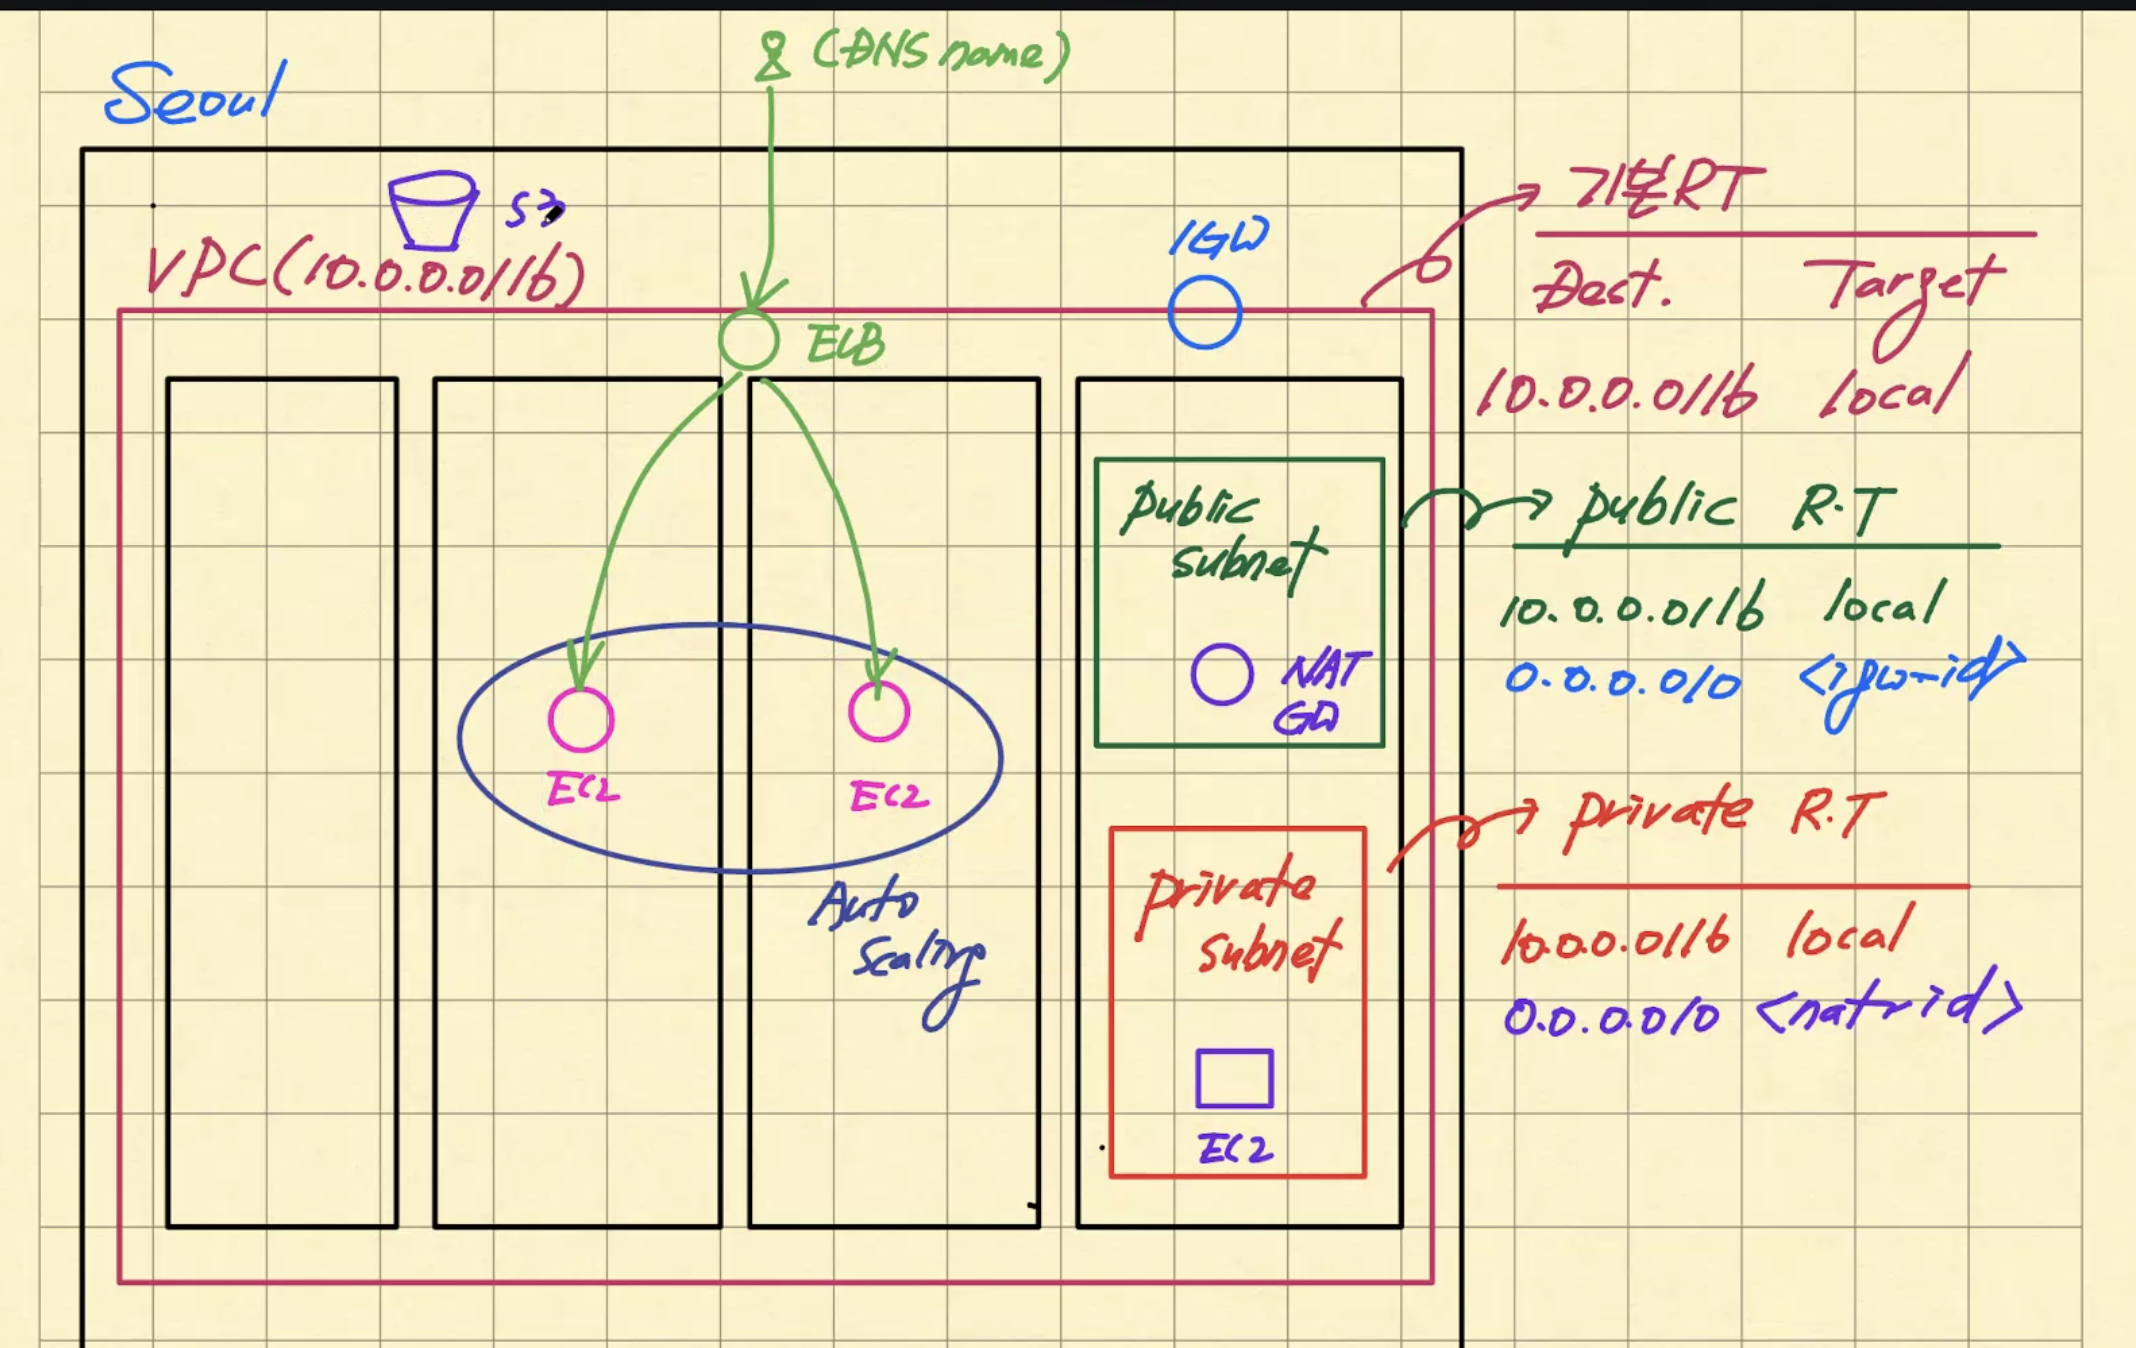 (DNS name)
Seoul
S3
VPC(10.0.0.0/16)
IGW
ELB
EC2
EC2
Auto
Scaling
public
subnet
NAT
GW
private
subnet
EC2
기본RT
Dest. Target
10.0.0.0/16 local
public R.T
10.0.0.0/16 local
0.0.0.0/0 <igw-id>
private R.T
10.0.0.0/16 local
0.0.0.0/0 <nat-id>